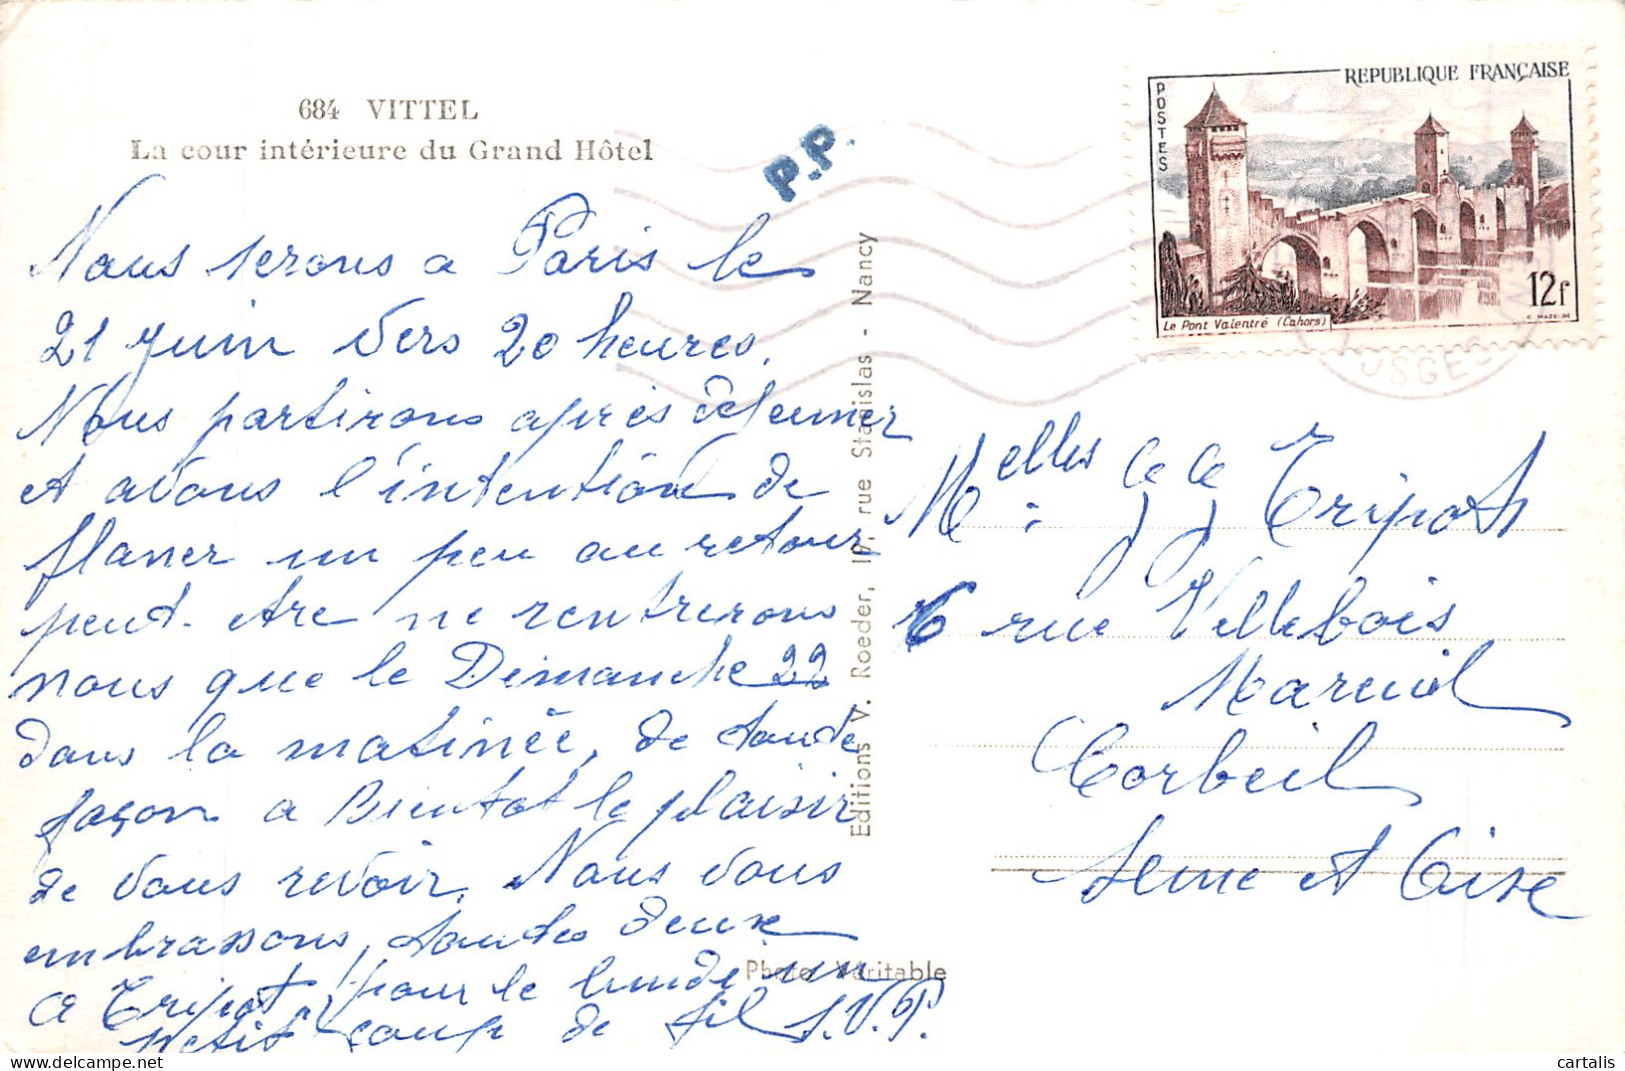 684 VITTEL
La cour intérieure du Grand Hôtel
P.P.
REPUBLIQUE FRANÇAISE
POSTES
12f
Le Pont Valentré (Cahors)
C. MAZELIN
Nous serons a Paris le
21 Juin vers 20 heures.
Nous partirons après déjeuner
et avons l'intention de
flaner un peu au retour
peut-etre ne rentrerons
nous que le Dimanche 22
dans la matinée, de toute
façon a Bientot le plaisir
de vous revoir. Nous vous
embrassons, toutes deux
Tripot
pour le lundi un
petit coup de fil S.V.P.
Editions V. Roeder, rue Stanislas - Nancy
Photo Véritable
Melles Tripot
6 rue Villebois
Mareuil
Corbeil
Seine et Oise
cartalis